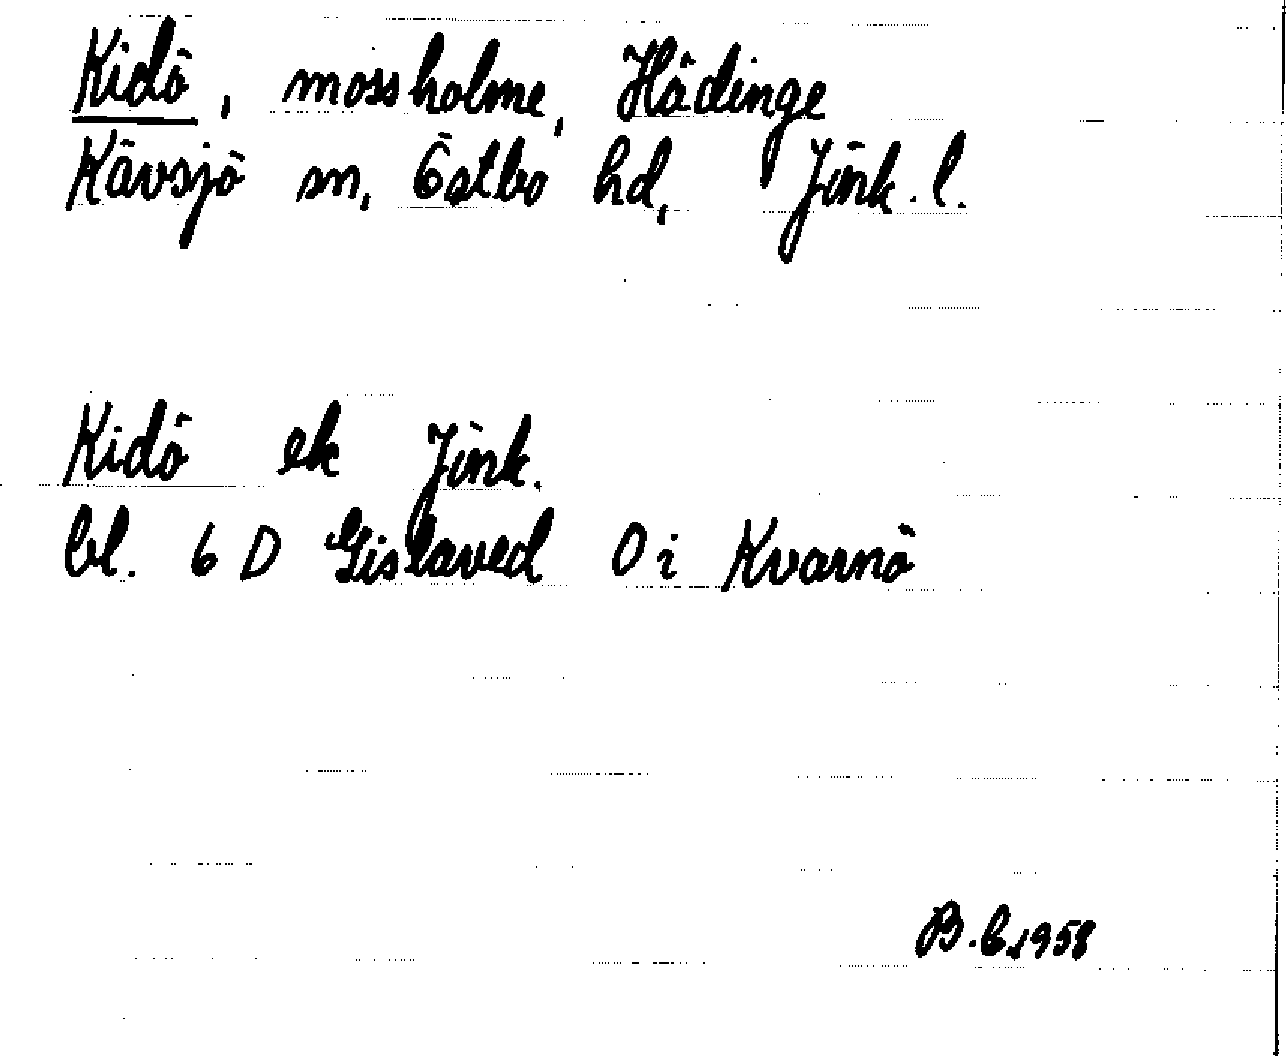 Kidö, mossholme, Hädinge
Kävsjö sn, Östbo hd, Jönk. l.
Kidö ek Jönk.
bl. 6 D Gislaved O i Kvarnö
1958